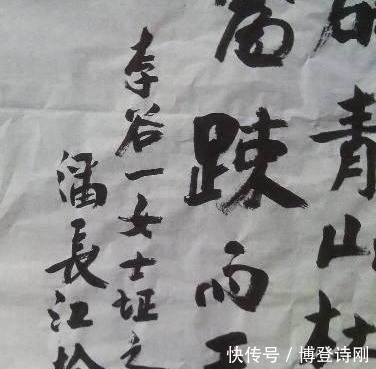 青山
踈而
李谷一女士址之
潘長江
快传号 / 博登诗刚